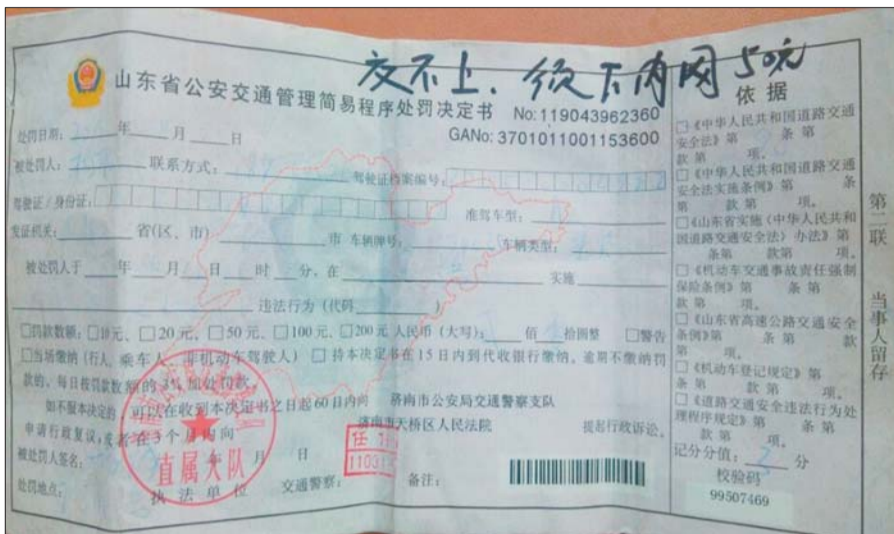 交不上、须下内网50元
山东省公安交通管理简易程序处罚决定书
No:119043962360
GANo: 3701011001153600
处罚日期: 年 月 日
被处罚人: 联系方式: 驾驶证档案编号:
驾驶证/身份证: 准驾车型:
发证机关: 省(区、市) 市 车辆牌号: 车辆类型:
被处罚人于 年 月 日 时 分,在 实施
违法行为(代码 )
□罚款数额:□10元、□20元、□50元、□100元、□200元 人民币(大写): 佰 拾圆整 □警告
□当场缴纳(行人、乘车人、非机动车驾驶人) □持本决定书在15日内到代收银行缴纳,逾期不缴纳罚
款的,每日按罚款数额的3%加处罚款。
如不服本决定的,可以在收到本决定书之日起60日内向 济南市公安局交通警察支队
申请行政复议;或者在3个月内向 济南市天桥区人民法院 提起行政诉讼。
被处罚人签名: 年 月 日
处罚地点: 执法单位 交通警察: 备注:
直属大队
依据
□《中华人民共和国道路交通
安全法》第 条 第
款 第 项。
□《中华人民共和国道路交通
安全法实施条例》第 条
第 款 第 项。
□《山东省实施〈中华人民共和
国道路交通安全法〉办法》第
条第 款第 项。
□《机动车交通事故责任强制
保险条例》第 条 第
款 第 项。
□《山东省高速公路交通安全
条例》第 条 第 款
第 项。
□《机动车登记规定》第
条 第 款 第 项。
□《道路交通安全违法行为处
理程序规定》第 条 第
款 第 项。
记分分值: 分
校验码
99507469
第二联 当事人留存